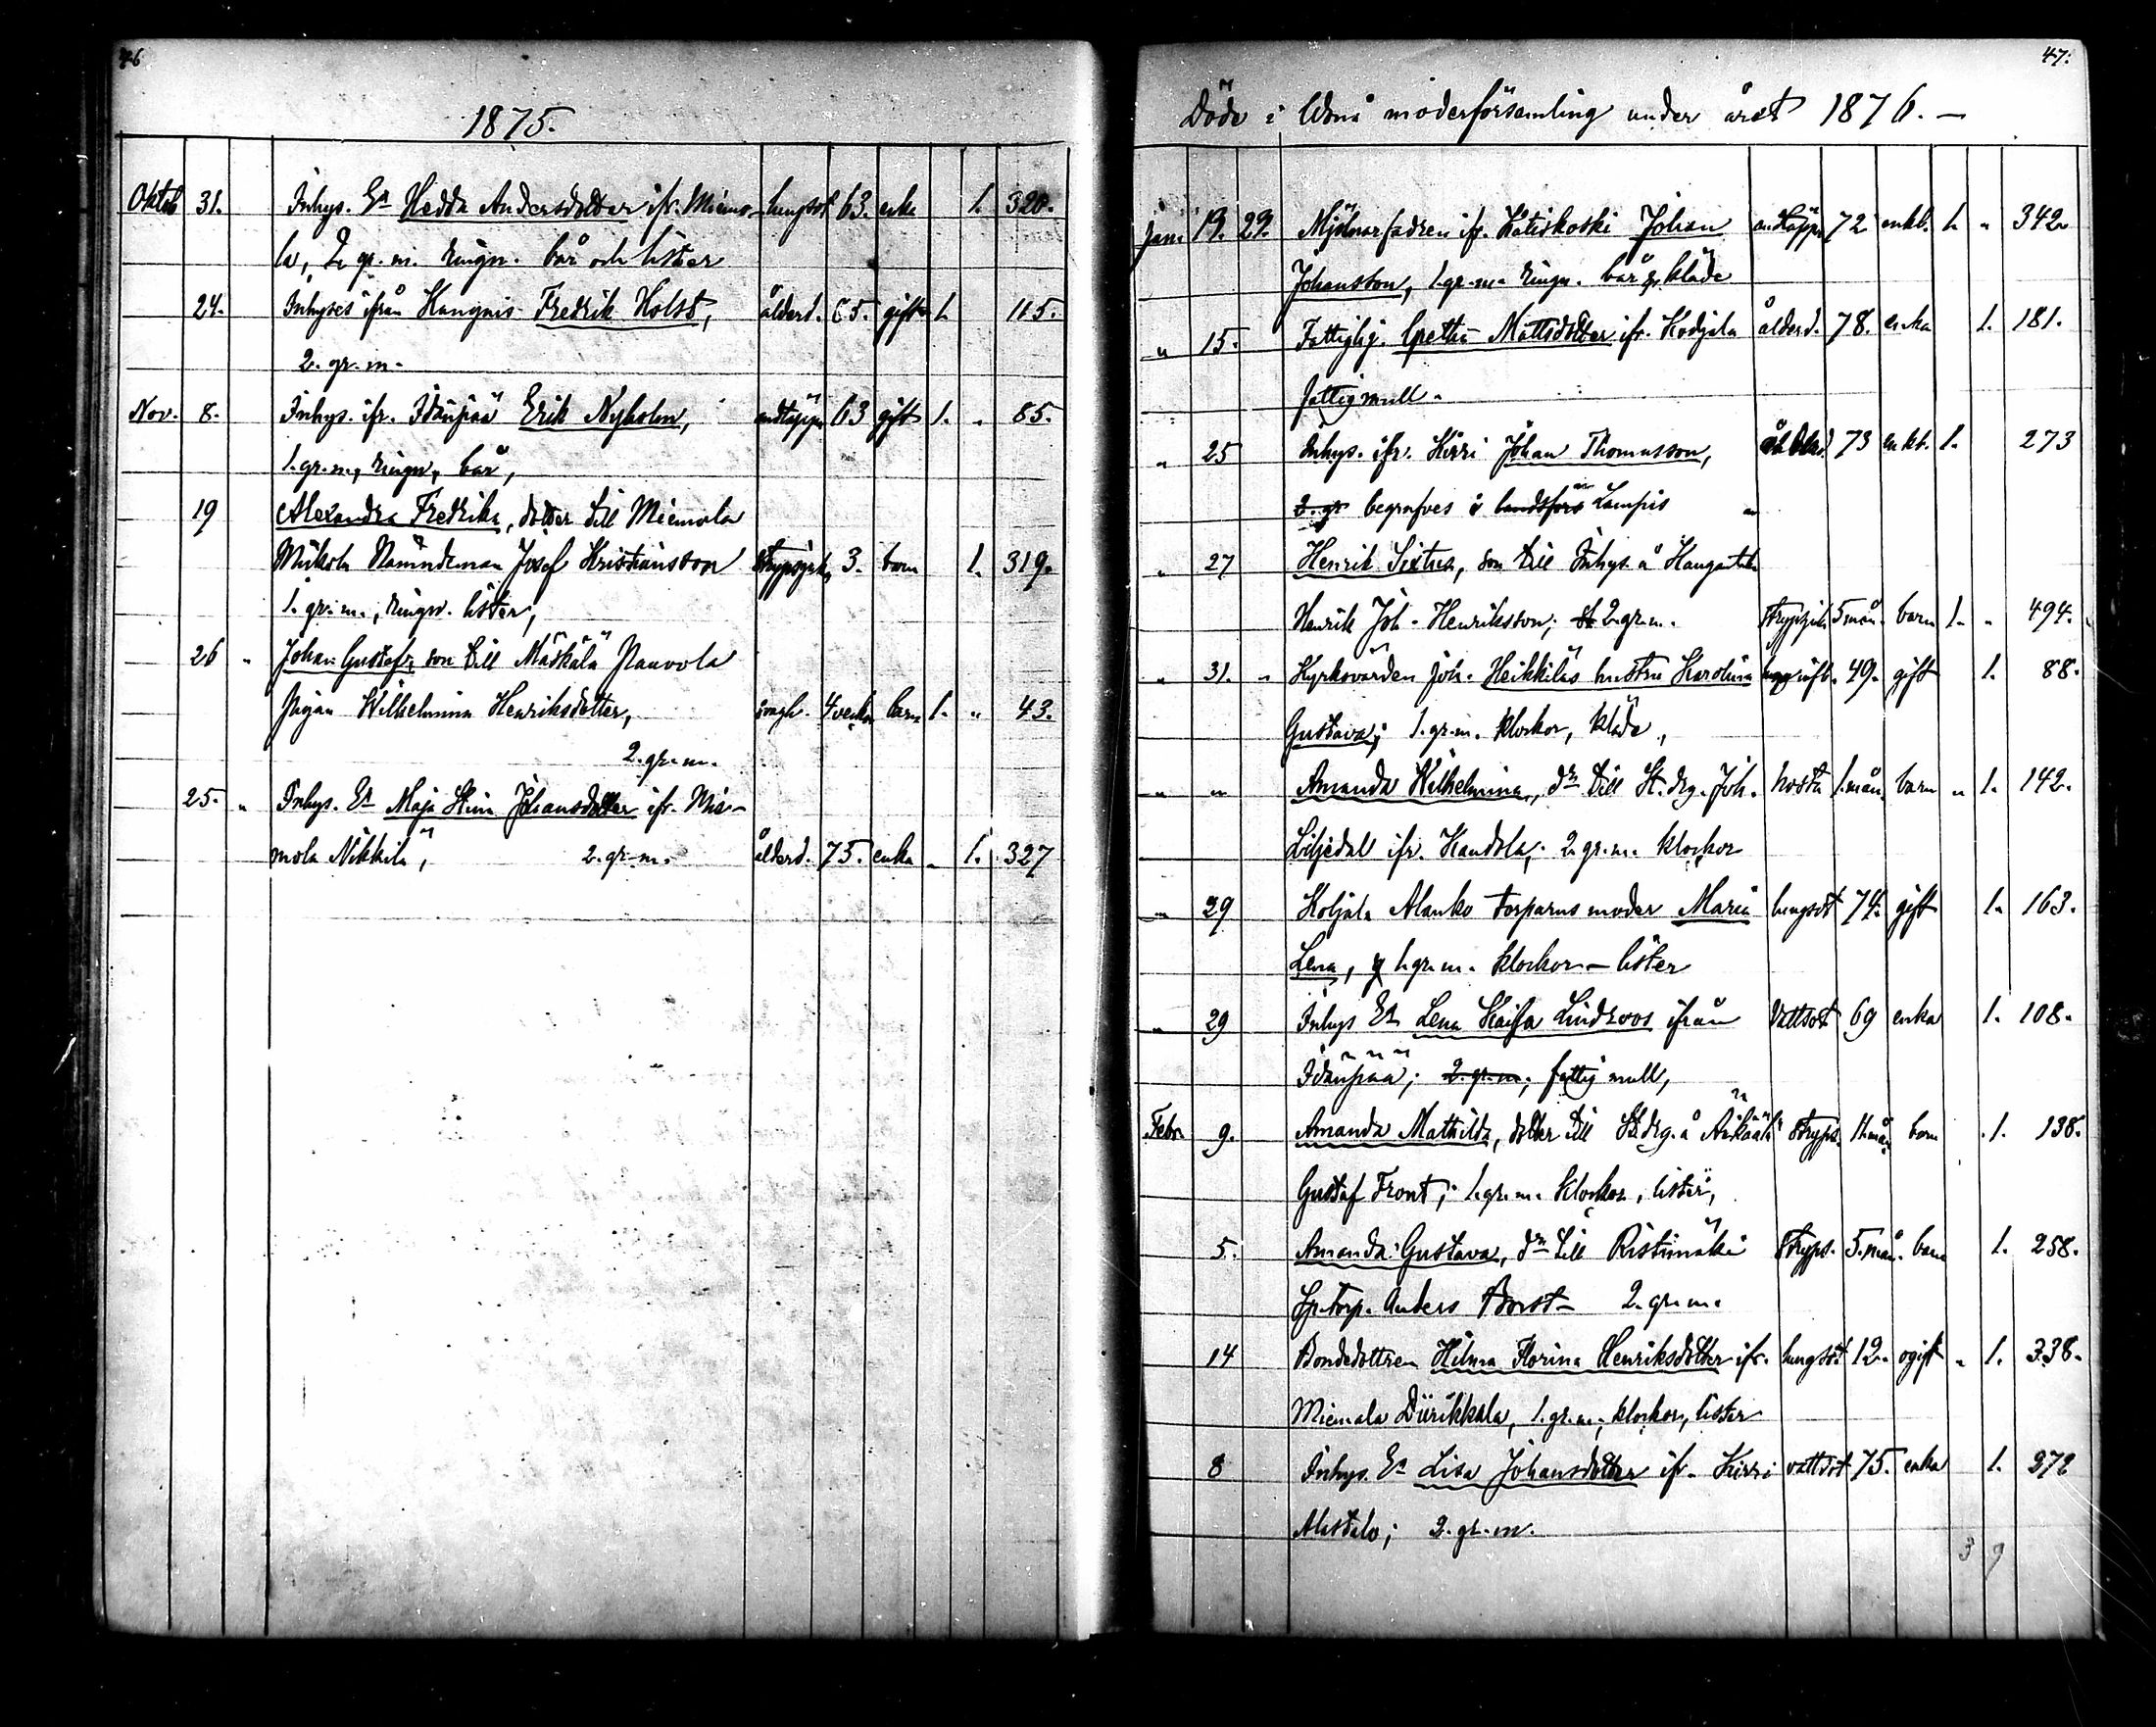 46
1875.
Oktob 31. Inhys. E:a Hedda Andersdotter ifr. Miemo- lungsot 63. enka 1. 320.
la, 2 gr. m. ringn. bår och lister
24. Inhyses ifrån Hangnis Fredrik Holst, ålderd. 65. gift 1. 115.
2. gr. m.
Nov. 8. Inhys. ifr. Idänpää Erik Nyholm, andtäppa 63 gift 1. " 85.
1. gr. m., ringn, bår,
19 Alexandra Fredrika, dotter till Miemola
Nämndeman Josef Kristiansson strypsjuka 3. barn 1. 319.
1. gr. m., ringn. lister,
26 " Johan Gustaf, son till Mäskälä Paavola
pigan Wilhelmina Henriksdotter, 4 veckor barn 1. " 43.
2. gr. m.
25. " Inhys. E:a Maja Stina Johansdotter ifr. Mie-
mola Nikkilä, 2. gr. m. ålderd. 75. enka " 1. 327
47.
Döde i Wånå moderförsamling under året 1876. —
Jan. 19. 29. Mjölnarfadren ifr. Katiskoski Johan andtäppa 72 enkl. 1. " 342.
Johansson, 1. gr. m. ringn. bår & kläde
" 15. Fattighj. Gretha Mattsdotter ifr. Kodjala ålderd. 78. enka 1. 181.
fattigmull.
" 25 Inhys. ifr. Hirri Johan Thomasson, ålderd. 73 enkl. 1. 273
2. gr begrafves i landsförs Lampis
" 27 Henrik Sixtus, son till Inhys. å
Henrik Joh. Henriksson; 2. gr. m. strypsjuka 5 mån. barn 1. " 494.
" 31. " Kyrkovärden Joh. Heikkiläs hustru Karolina 49. gift 1. 88.
Gustava; 1. gr. m. klockor, kläde,
" " Amanda Wilhelmina, d:r till St. drg. Joh. hosta 1. mån. barn " 1. 142.
Liljedal ifr. Kandola; 2. gr. m. klockor
" 29 Koljala Alanko torparns moder Maria lungsot 74. gift 1. 163.
Lena, 1. gr. m. klockor — lister
" 29 Inhys E:a Lena Kaisa Lindroos ifrån Vattsot 69 enka 1. 108.
Idänpää; 2. gr. m; fattig mull,
Febr. 9. Amanda Mathilda, dotter till St. drg. å stryps. 11 mån. barn 1. 138.
Gustaf Front; 1. gr. m. klockor, lister,
5. Amanda Gustava, d:r till Ristimäki stryps. 5. mån. barn 1. 258.
Sp. torp. Anders 2. gr. m.
14 Bondedottren Hilma Florina Henriksdotter ifr. lungsot 12. ogift " 1. 338.
Miemala Diirikkala, 1. gr. m., klockor, lister
8 Inhys. E:a Lisa Johansdotter ifr. Hirri vattsot 75. enka 1. 272
Alastalo; 2. gr. m.
3 9